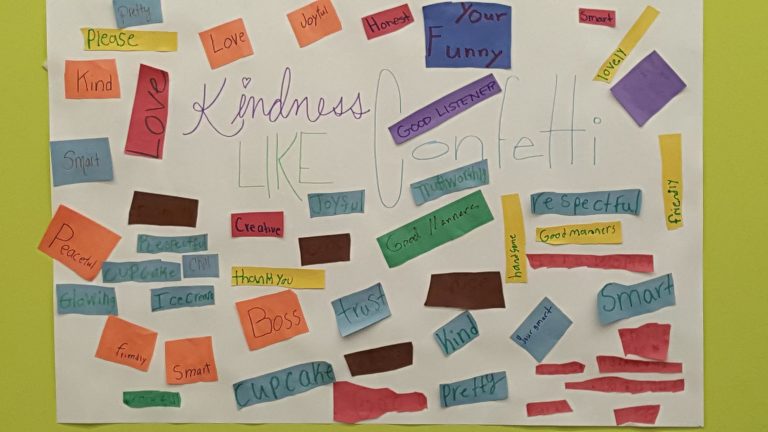 Pretty
Please
Love
Joyful
Honest
Your
Funny
Smart
lovely
Kind
LOVE
Kindness
LIKE Confetti
GOOD LISTENER
Smart
Trustworthy
friendly
Joyful
respectful
Peaceful
Creative
Good Manners
handsome
Good manners
Respectful
CUPCake
Chill
thank you
Glowing
Ice Cream
Boss
trust
Smart
Kind
friendly
Smart
CUPCake
Pretty